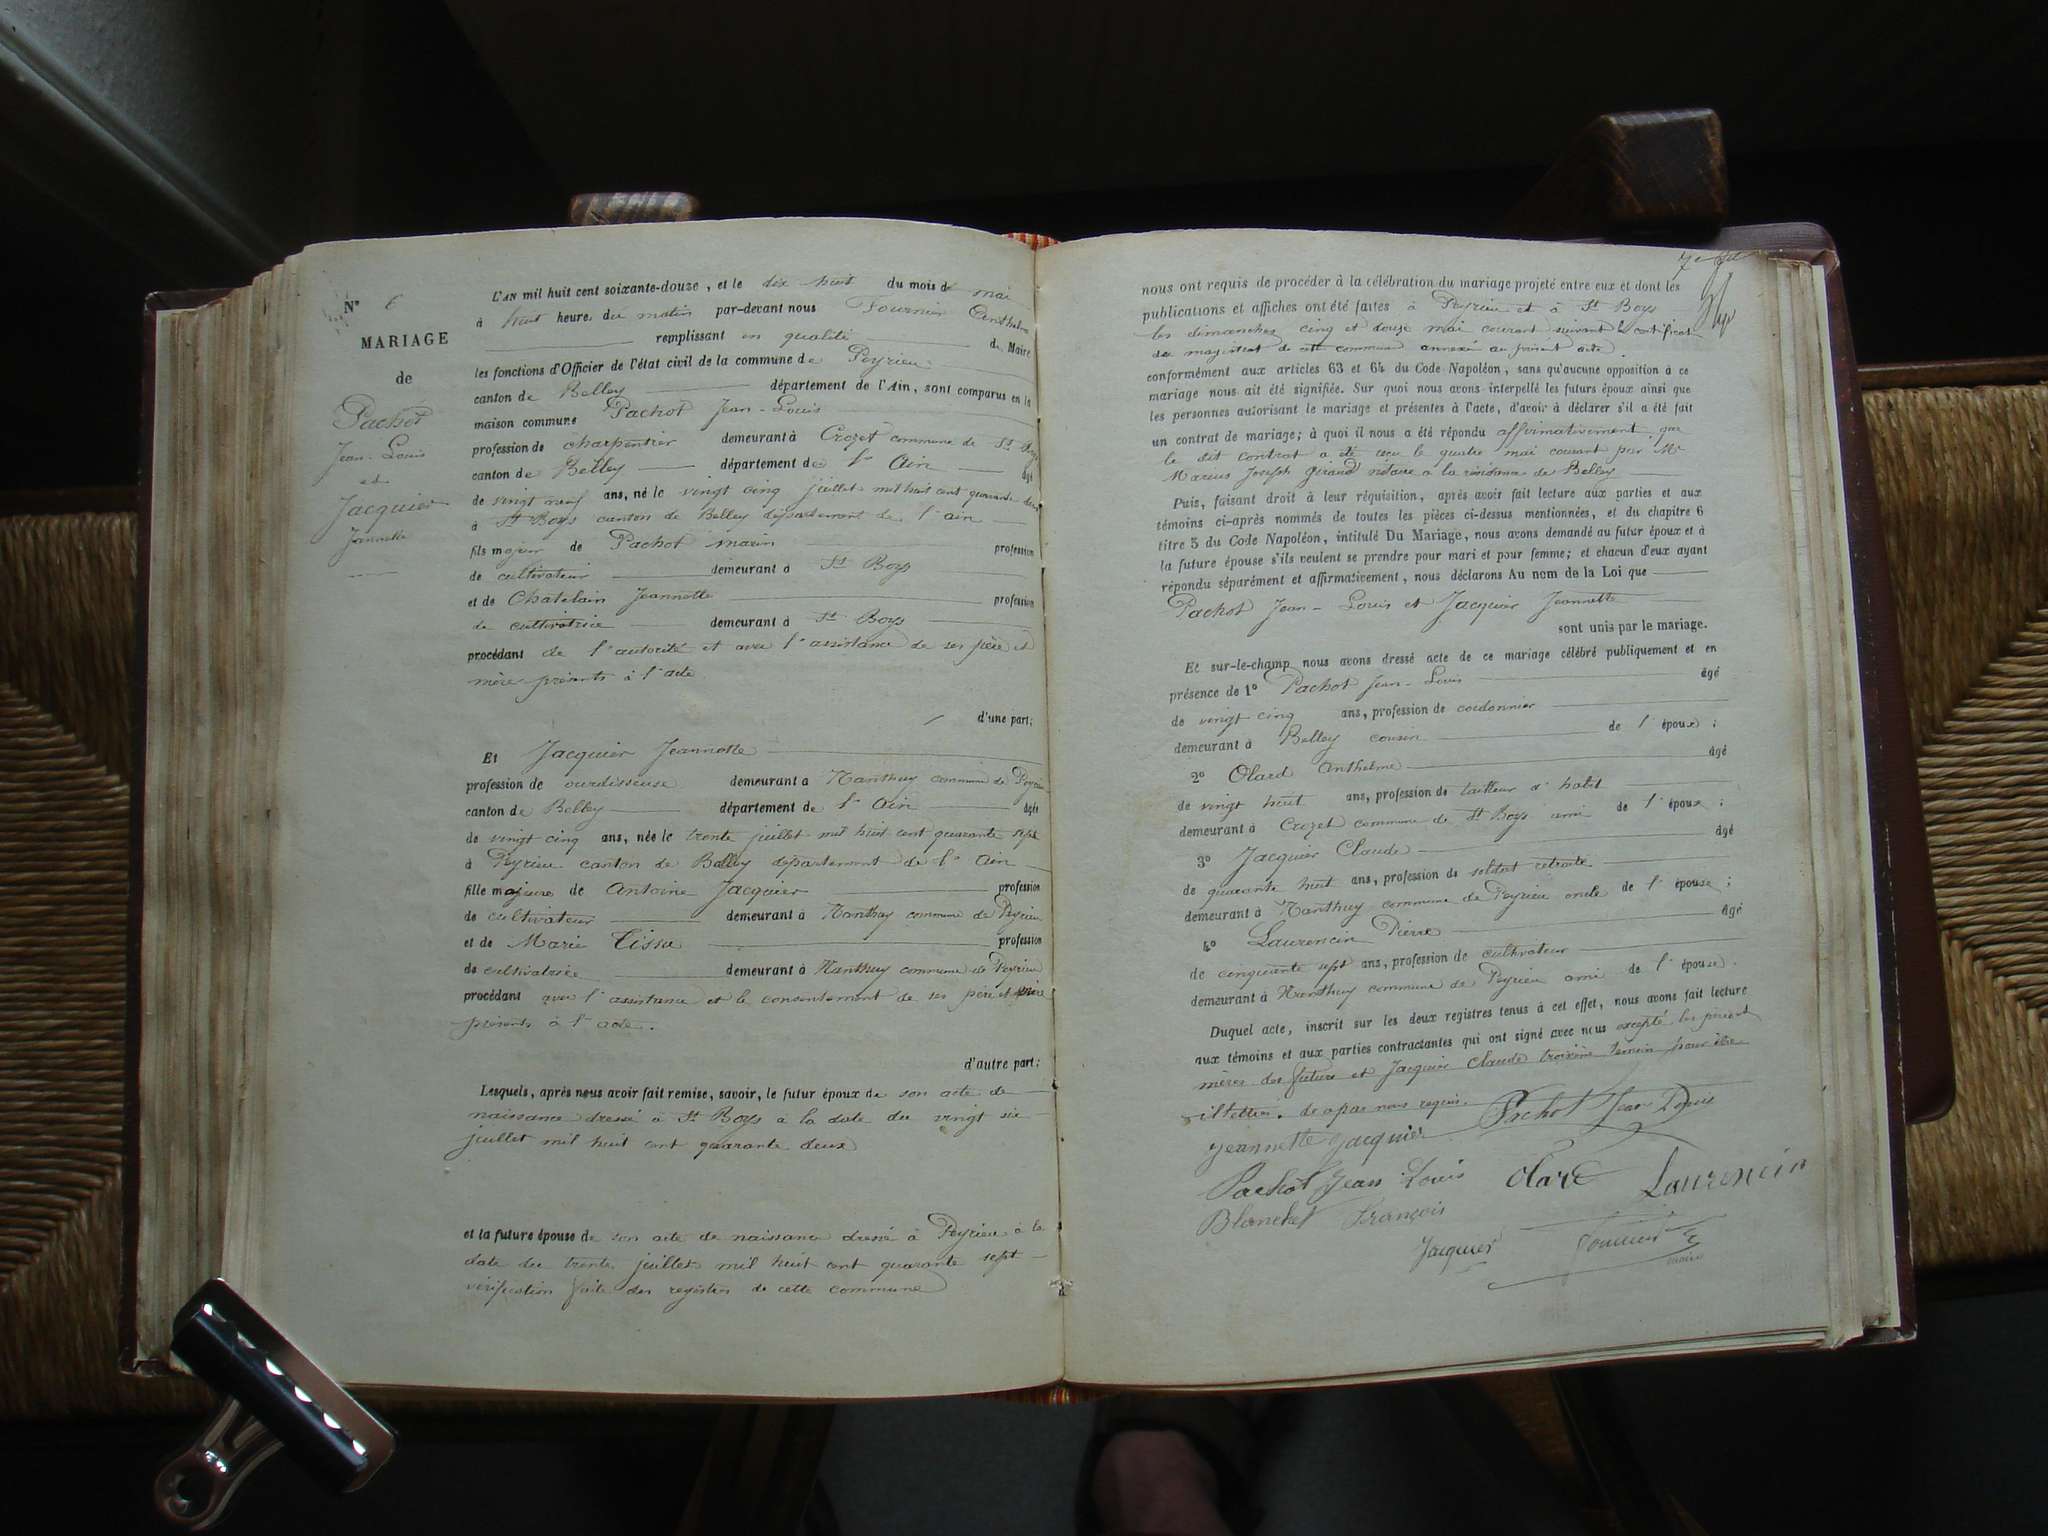 N° 6
MARIAGE
de
Pachot
Jean-Louis
et
Jacquier
Jeannette
L'AN mil huit cent soixante-douze, et le dix huit du mois de mai
à huit heure du matin par-devant nous Fournier Anthelme
remplissant en qualité de Maire
les fonctions d'Officier de l'état civil de la commune de Peyrieu
canton de Belley département de l'Ain, sont comparus en la
maison commune Pachot Jean-Louis
profession de charpentier demeurant à Crozet commune de St Boys
canton de Belley département de l'Ain âgé
de vingt neuf ans, né le vingt cinq juillet mil huit cent quarante deux
à St Boys canton de Belley département de l'ain
fils majeur de Pachot marin profession
de cultivateur demeurant à St Boys
et de Chatelain Jeannette profession
de cultivatrice demeurant à St Boys
procédant de l'autorité et avec l'assistance de ses père et
mère présents à l'acte.
d'une part;
Et Jacquier Jeannette
profession de ourdisseuse demeurant à Nanthuy commune de Peyrieu
canton de Belley département de l'Ain âgée
de vingt cinq ans, née le trente juillet mil huit cent quarante sept
à Peyrieu canton de Belley département de l'Ain
fille majeure de Antoine Jacquier profession
de cultivateur demeurant à Nanthuy commune de Peyrieu
et de Marie Tissu profession
de cultivatrice demeurant à Nanthuy commune de Peyrieu
procédant avec l'assistance et le consentement de ses père et mère
présents à l'acte.
d'autre part;
Lesquels, après nous avoir fait remise, savoir, le futur époux de son acte de
naissance dressé à St Boys à la date du vingt six
juillet mil huit cent quarante deux
et la future épouse de son acte de naissance dressé à Peyrieu à la
date du trente juillet mil huit cent quarante sept
vérification faite des registres de cette commune
7e
nous ont requis de procéder à la célébration du mariage projeté entre eux et dont les
publications et affiches ont été faites à Peyrieu et à St Boys
les dimanches cinq et douze mai courant suivant le certificat
du magistrat de cette commune annexé au présent acte.
conformément aux articles 63 et 64 du Code Napoléon, sans qu'aucune opposition à ce
mariage nous ait été signifiée. Sur quoi nous avons interpellé les futurs époux ainsi que
les personnes autorisant le mariage et présentes à l'acte, d'avoir à déclarer s'il a été fait
un contrat de mariage; à quoi il nous a été répondu affirmativement que
le dit contrat a été reçu le quatre mai courant par Me
Marius Joseph Girand notaire à la résidence de Belley
Puis, faisant droit à leur réquisition, après avoir fait lecture aux parties et aux
témoins ci-après nommés de toutes les pièces ci-dessus mentionnées, et du chapitre 6
titre 5 du Code Napoléon, intitulé Du Mariage, nous avons demandé au futur époux et à
la future épouse s'ils veulent se prendre pour mari et pour femme; et chacun d'eux ayant
répondu séparément et affirmativement, nous déclarons Au nom de la Loi que
Pachot Jean-Louis et Jacquier Jeannette
sont unis par le mariage.
Et sur-le-champ nous avons dressé acte de ce mariage célébré publiquement et en
présence de 1° Pachot Jean-Louis âgé
de vingt cinq ans, profession de cordonnier
demeurant à Belley cousin de l'époux;
2° Olard Anthelme âgé
de vingt huit ans, profession de tailleur d'habit
demeurant à Crozet commune de St Boys ami de l'époux;
3° Jacquier Claude âgé
de quarante huit ans, profession de soldat retraité
demeurant à Nanthuy commune de Peyrieu oncle de l'épouse;
4° Laurencin Pierre âgé
de cinquante sept ans, profession de cultivateur
demeurant à Nanthuy commune de Peyrieu ami de l'épouse.
Duquel acte, inscrit sur les deux registres tenus à cet effet, nous avons fait lecture
aux témoins et aux parties contractantes qui ont signé avec nous excepté les père et
mères des futurs et Jacquier Claude troisième témoin pour être
illettrés. de a par nous requis.
Pachot Jean Louis
Jeannette Jacquier
Pachot Jean Louis Olard Laurencin
Blanchet François
Jacquier Fournier
maire